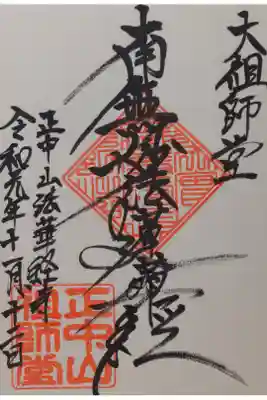 大祖師堂
南無妙法蓮華経
正中山法華経寺
令和元年十一月十三日
正中山
祖師堂